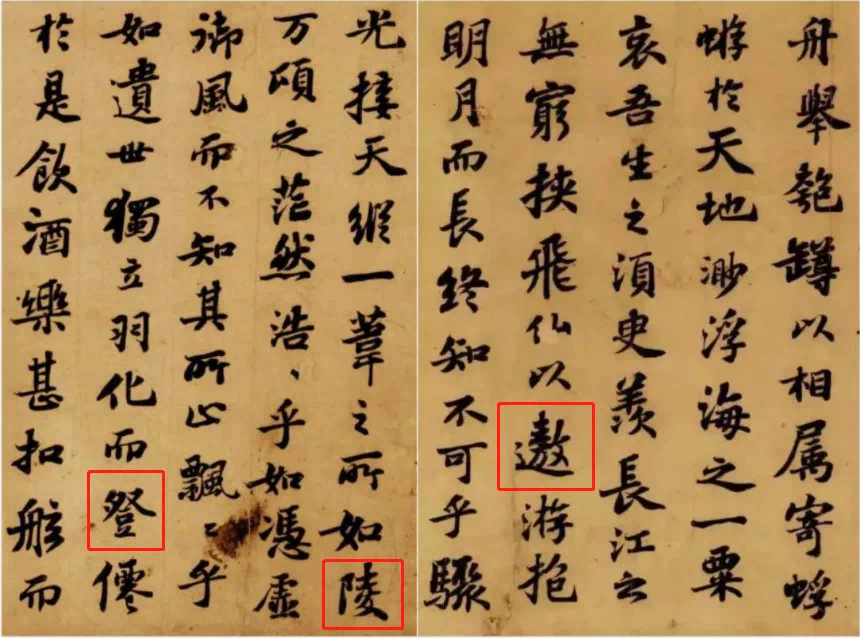 光接天縱一葦之所如陵
万頃之茫然浩〻乎如憑虛
御風而不知其所止飄〻乎
如遺世獨立羽化而登僊
於是飲酒樂甚扣舷而
舟舉匏罇以相属寄蜉
蝣於天地渺浮海之一粟
哀吾生之須臾羨長江之
無窮挾飛仙以遨游抱
明月而長終知不可乎驟